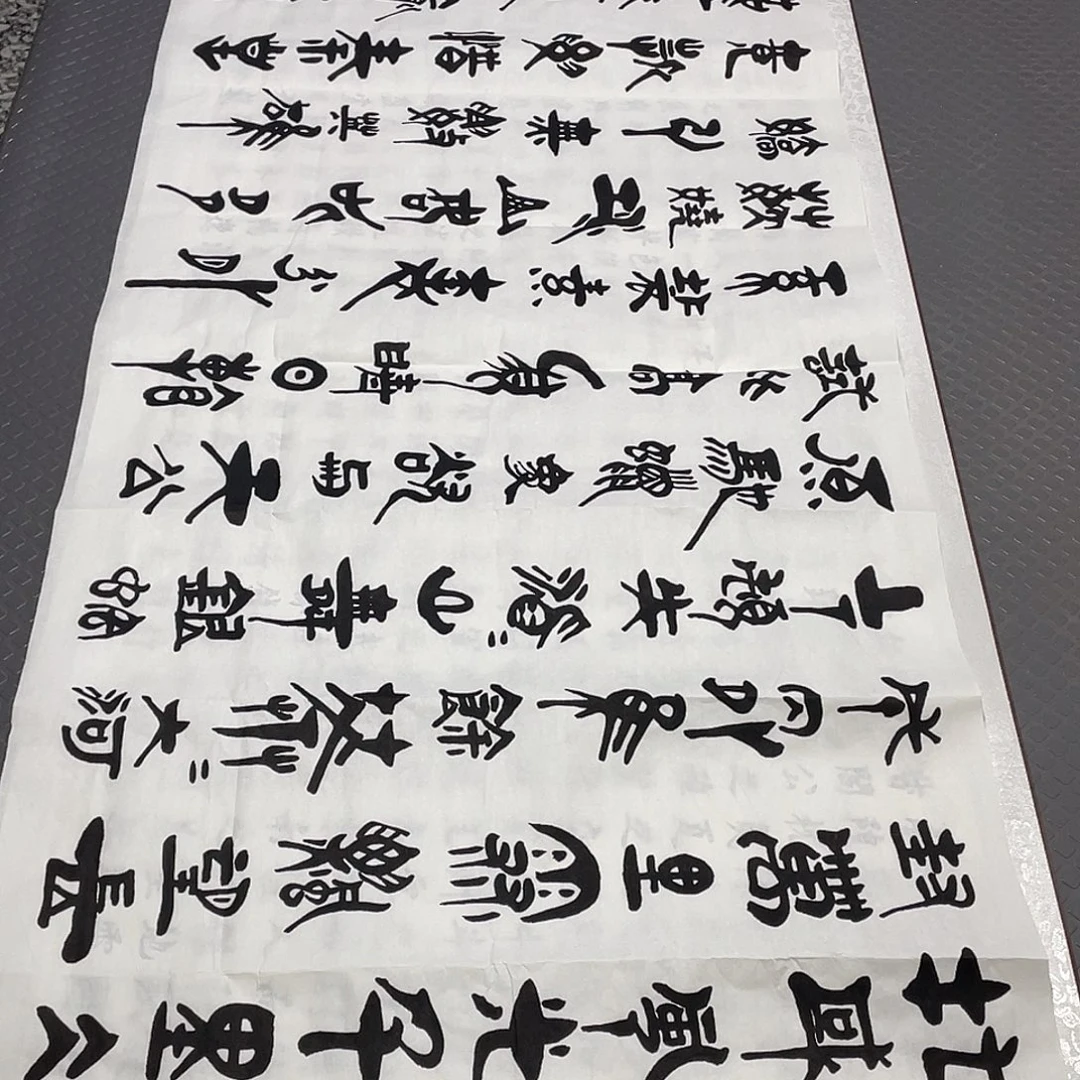 北國風光千里仌
封萬里雪飄望長
城內外惟餘莽=大河
上下頓失滔=山舞銀蛇
原馳蠟象欲與天公
試比高須晴日看
紅裝素裹分外
妖嬈江山如此多
嬌引無數英雄
競折腰惜秦皇